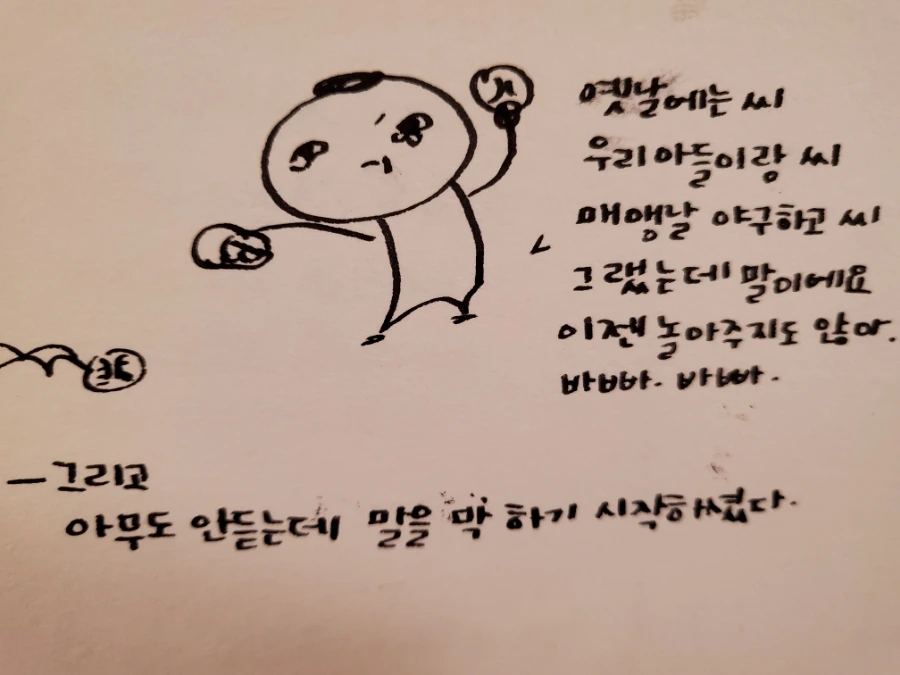 옛날에는 씨
우리아들이랑 씨
매앵날 야구하고 씨
그랬는데 말이에요
이젠 놀아주지도 않아.
바빠. 바빠.
ㅡ그리고
아무도 안듣는데 말을 막 하기 시작하셨다.